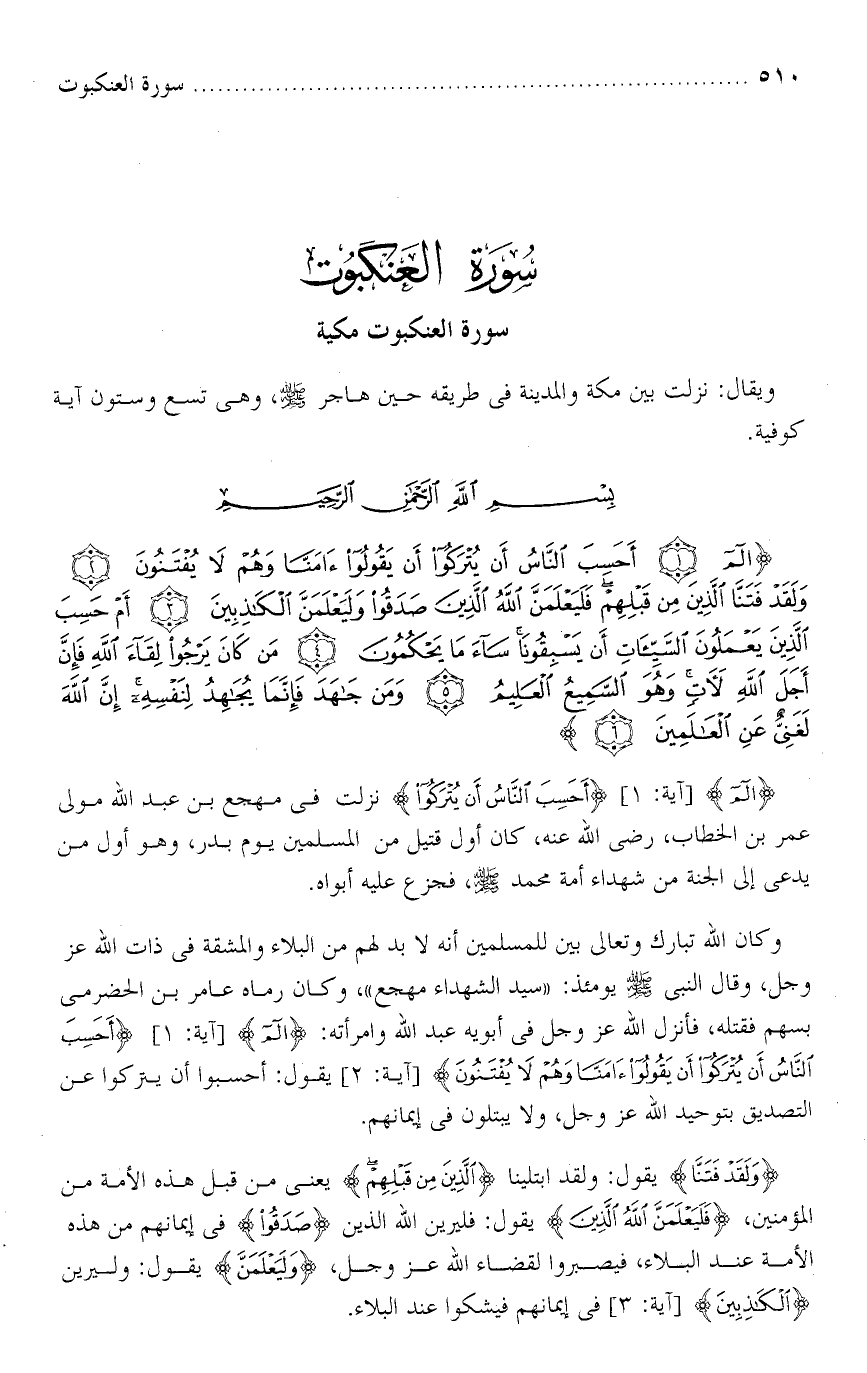 ٥١٠ ........................................................................ سورة العنكبوت
سُورَةُ العَنكَبُوت
سورة العنكبوت مكية
ويقال: نزلت بين مكة والمدينة فى طريقه حين هاجر ﷺ، وهى تسع وستون آية
كوفية.
بِسْمِ ٱللَّهِ ٱلرَّحْمَٰنِ ٱلرَّحِيمِ
﴿الٓمٓ ١ أَحَسِبَ ٱلنَّاسُ أَن يُتْرَكُوٓا۟ أَن يَقُولُوٓا۟ ءَامَنَّا وَهُمْ لَا يُفْتَنُونَ ٢
وَلَقَدْ فَتَنَّا ٱلَّذِينَ مِن قَبْلِهِمْ ۖ فَلَيَعْلَمَنَّ ٱللَّهُ ٱلَّذِينَ صَدَقُوا۟ وَلَيَعْلَمَنَّ ٱلْكَٰذِبِينَ ٣ أَمْ حَسِبَ
ٱلَّذِينَ يَعْمَلُونَ ٱلسَّيِّـَٔاتِ أَن يَسْبِقُونَا ۚ سَآءَ مَا يَحْكُمُونَ ٤ مَن كَانَ يَرْجُوا۟ لِقَآءَ ٱللَّهِ فَإِنَّ
أَجَلَ ٱللَّهِ لَـَٔاتٍ ۚ وَهُوَ ٱلسَّمِيعُ ٱلْعَلِيمُ ٥ وَمَن جَٰهَدَ فَإِنَّمَا يُجَٰهِدُ لِنَفْسِهِۦٓ ۚ إِنَّ ٱللَّهَ
لَغَنِىٌّ عَنِ ٱلْعَٰلَمِينَ ٦ ﴾
﴿الٓمٓ﴾ [آية: ١] ﴿أَحَسِبَ ٱلنَّاسُ أَن يُتْرَكُوٓا۟﴾ نزلت فى مهجع بن عبد الله مولى
عمر بن الخطاب، رضى الله عنه، كان أول قتيل من المسلمين يوم بدر، وهو أول من
يدعى إلى الجنة من شهداء أمة محمد ﷺ، فجزع عليه أبواه.
وكان الله تبارك وتعالى بين للمسلمين أنه لا بد لهم من البلاء والمشقة فى ذات الله عز
وجل، وقال النبى ﷺ يومئذ: «سيد الشهداء مهجع»، وكان رماه عامر بن الحضرمى
بسهم فقتله، فأنزل الله عز وجل فى أبويه عبد الله وامرأته: ﴿الٓمٓ﴾ [آية: ١] ﴿أَحَسِبَ
ٱلنَّاسُ أَن يُتْرَكُوٓا۟ أَن يَقُولُوٓا۟ ءَامَنَّا وَهُمْ لَا يُفْتَنُونَ﴾ [آية: ٢] يقول: أحسبوا أن يتركوا عن
التصديق بتوحيد الله عز وجل، ولا يبتلون فى إيمانهم.
﴿وَلَقَدْ فَتَنَّا﴾ يقول: ولقد ابتلينا ﴿ٱلَّذِينَ مِن قَبْلِهِمْ ۖ﴾ يعنى من قبل هذه الأمة من
المؤمنين، ﴿فَلَيَعْلَمَنَّ ٱللَّهُ ٱلَّذِينَ﴾ يقول: فليرين الله الذين ﴿صَدَقُوا۟﴾ فى إيمانهم من هذه
الأمة عند البلاء، فيصبروا لقضاء الله عز وجل، ﴿وَلَيَعْلَمَنَّ﴾ يقول: وليرين
﴿ٱلْكَٰذِبِينَ﴾ [آية: ٣] فى إيمانهم فيشكوا عند البلاء.